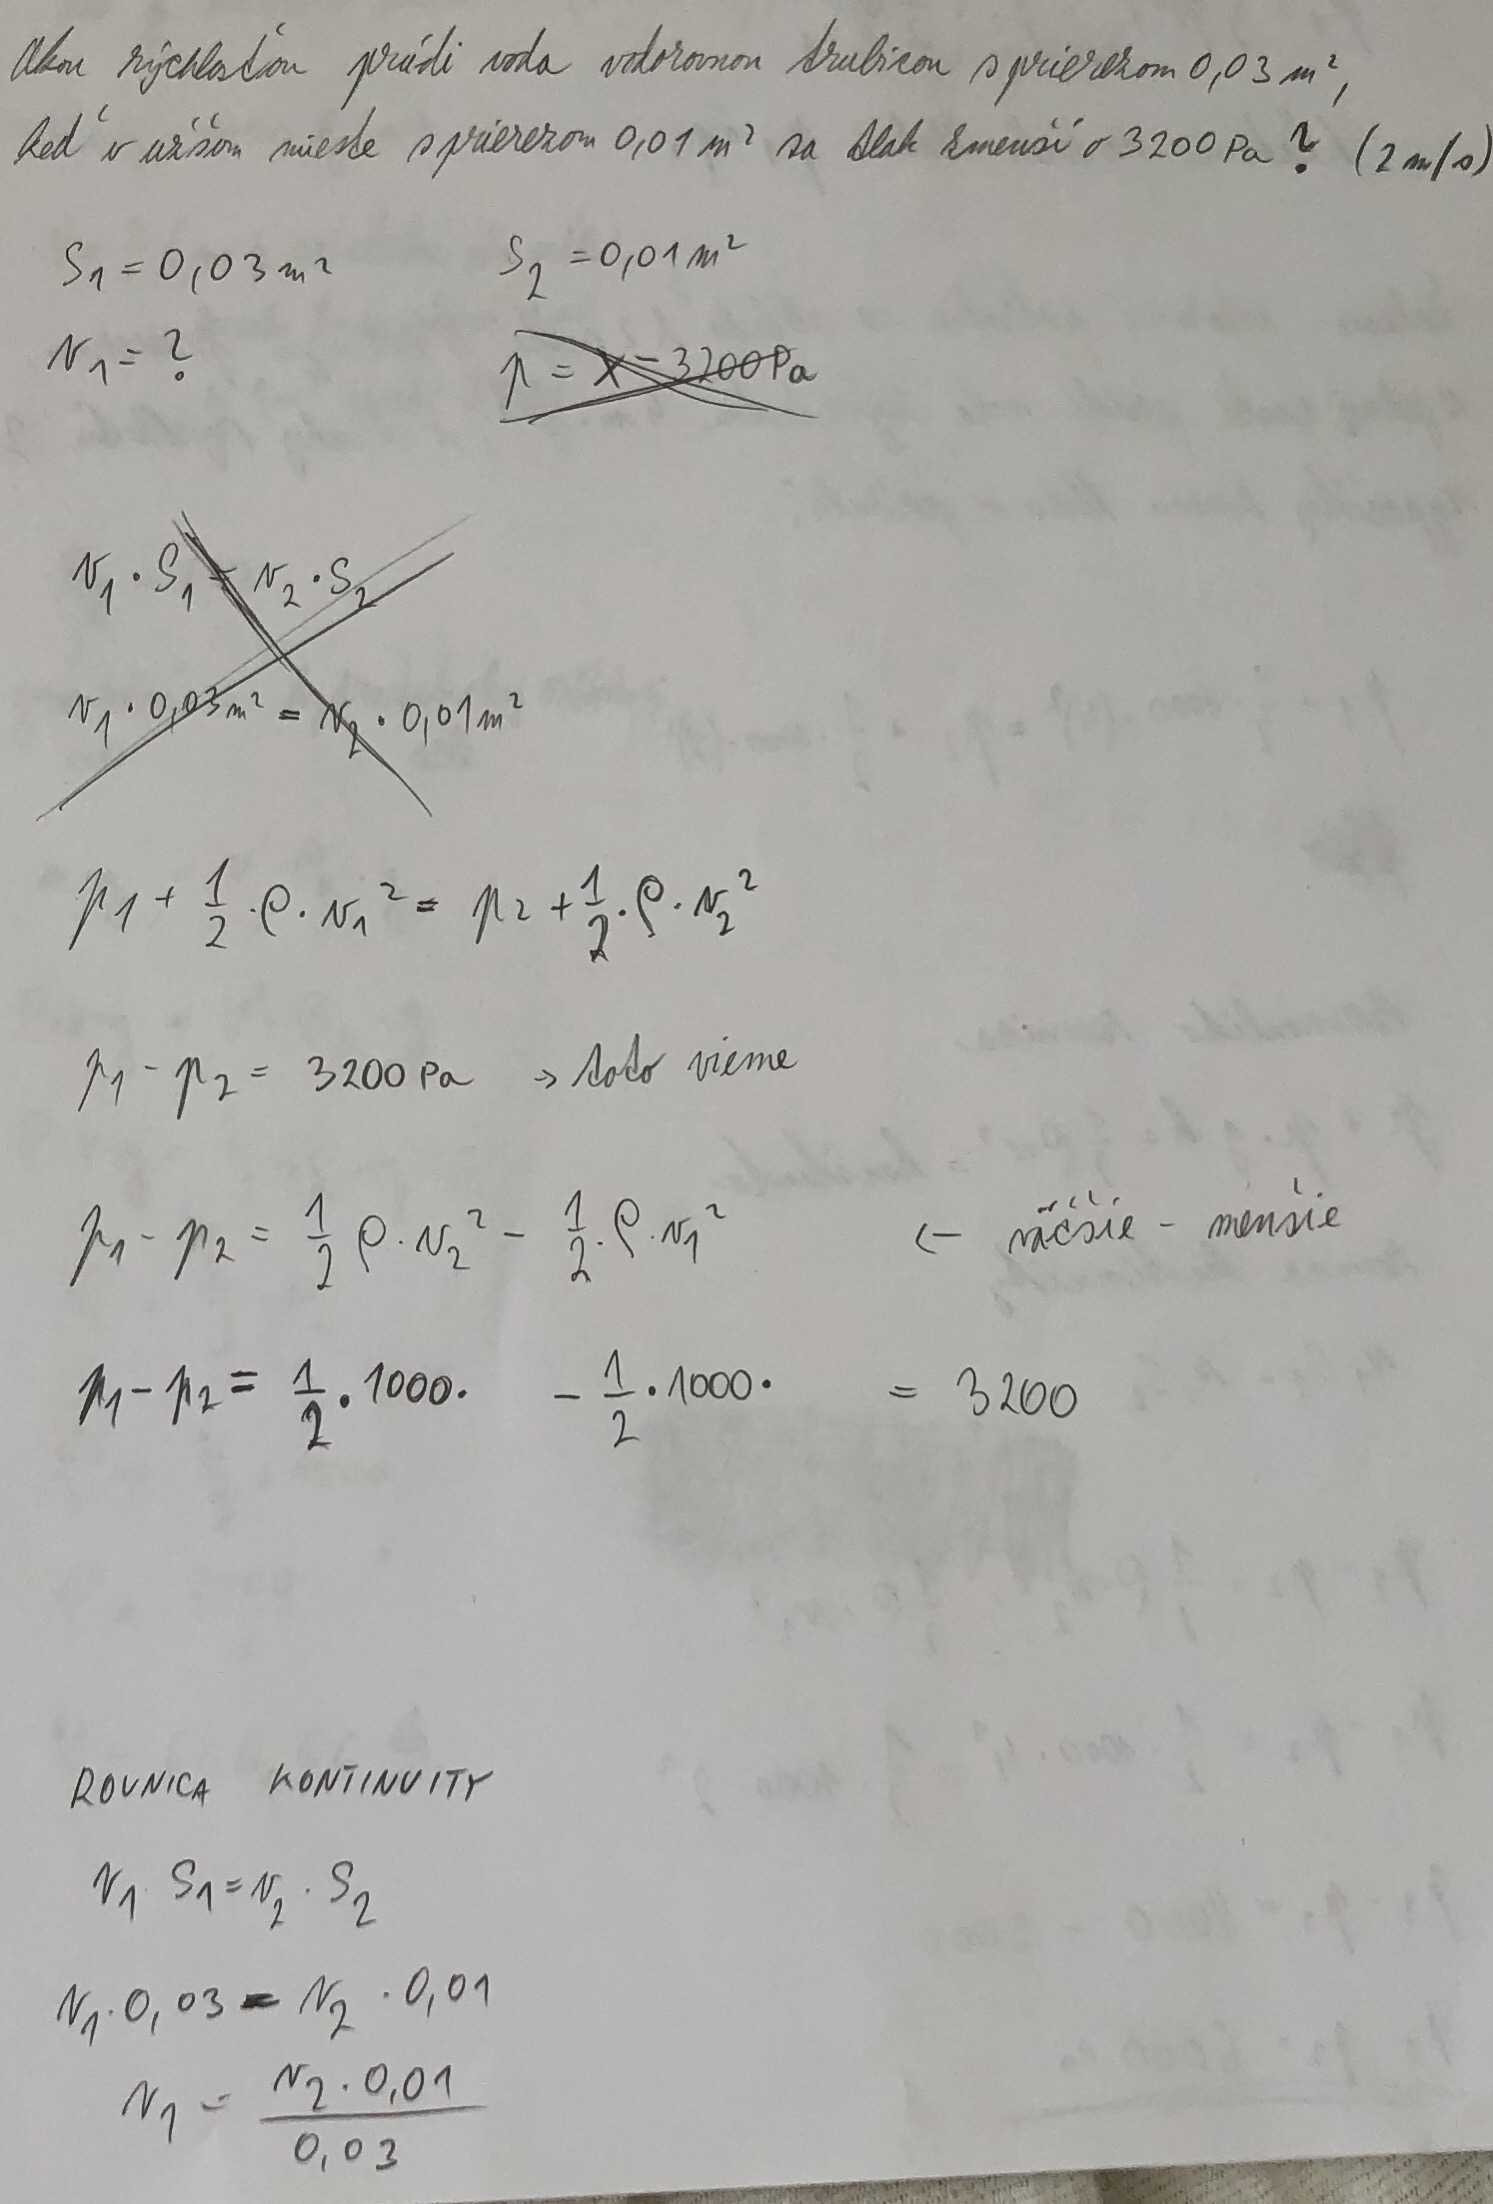 Akou rýchlosťou prúdi voda vodorovnou trubicou s prierezom 0,03 m²,
keď v užšom mieste s prierezom 0,01 m² sa tlak zmenší o 3200 Pa? (2 m/s)
S₁ = 0,03 m² S₂ = 0,01 m²
v₁ = ? p = x - 3200 Pa
v₁ · S₁ = v₂ · S₂
v₁ · 0,03 m² = v₂ · 0,01 m²
p₁ + 1/2 · ρ · v₁² = p₂ + 1/2 · ρ · v₂²
p₁ - p₂ = 3200 Pa → toto vieme
p₁ - p₂ = 1/2 ρ · v₂² - 1/2 · ρ · v₁² ← väčšie - menšie
p₁ - p₂ = 1/2 · 1000 · - 1/2 · 1000 · = 3200
ROVNICA KONTINUITY
v₁ · S₁ = v₂ · S₂
v₁ · 0,03 = v₂ · 0,01
v₁ = v₂ · 0,01 / 0,03